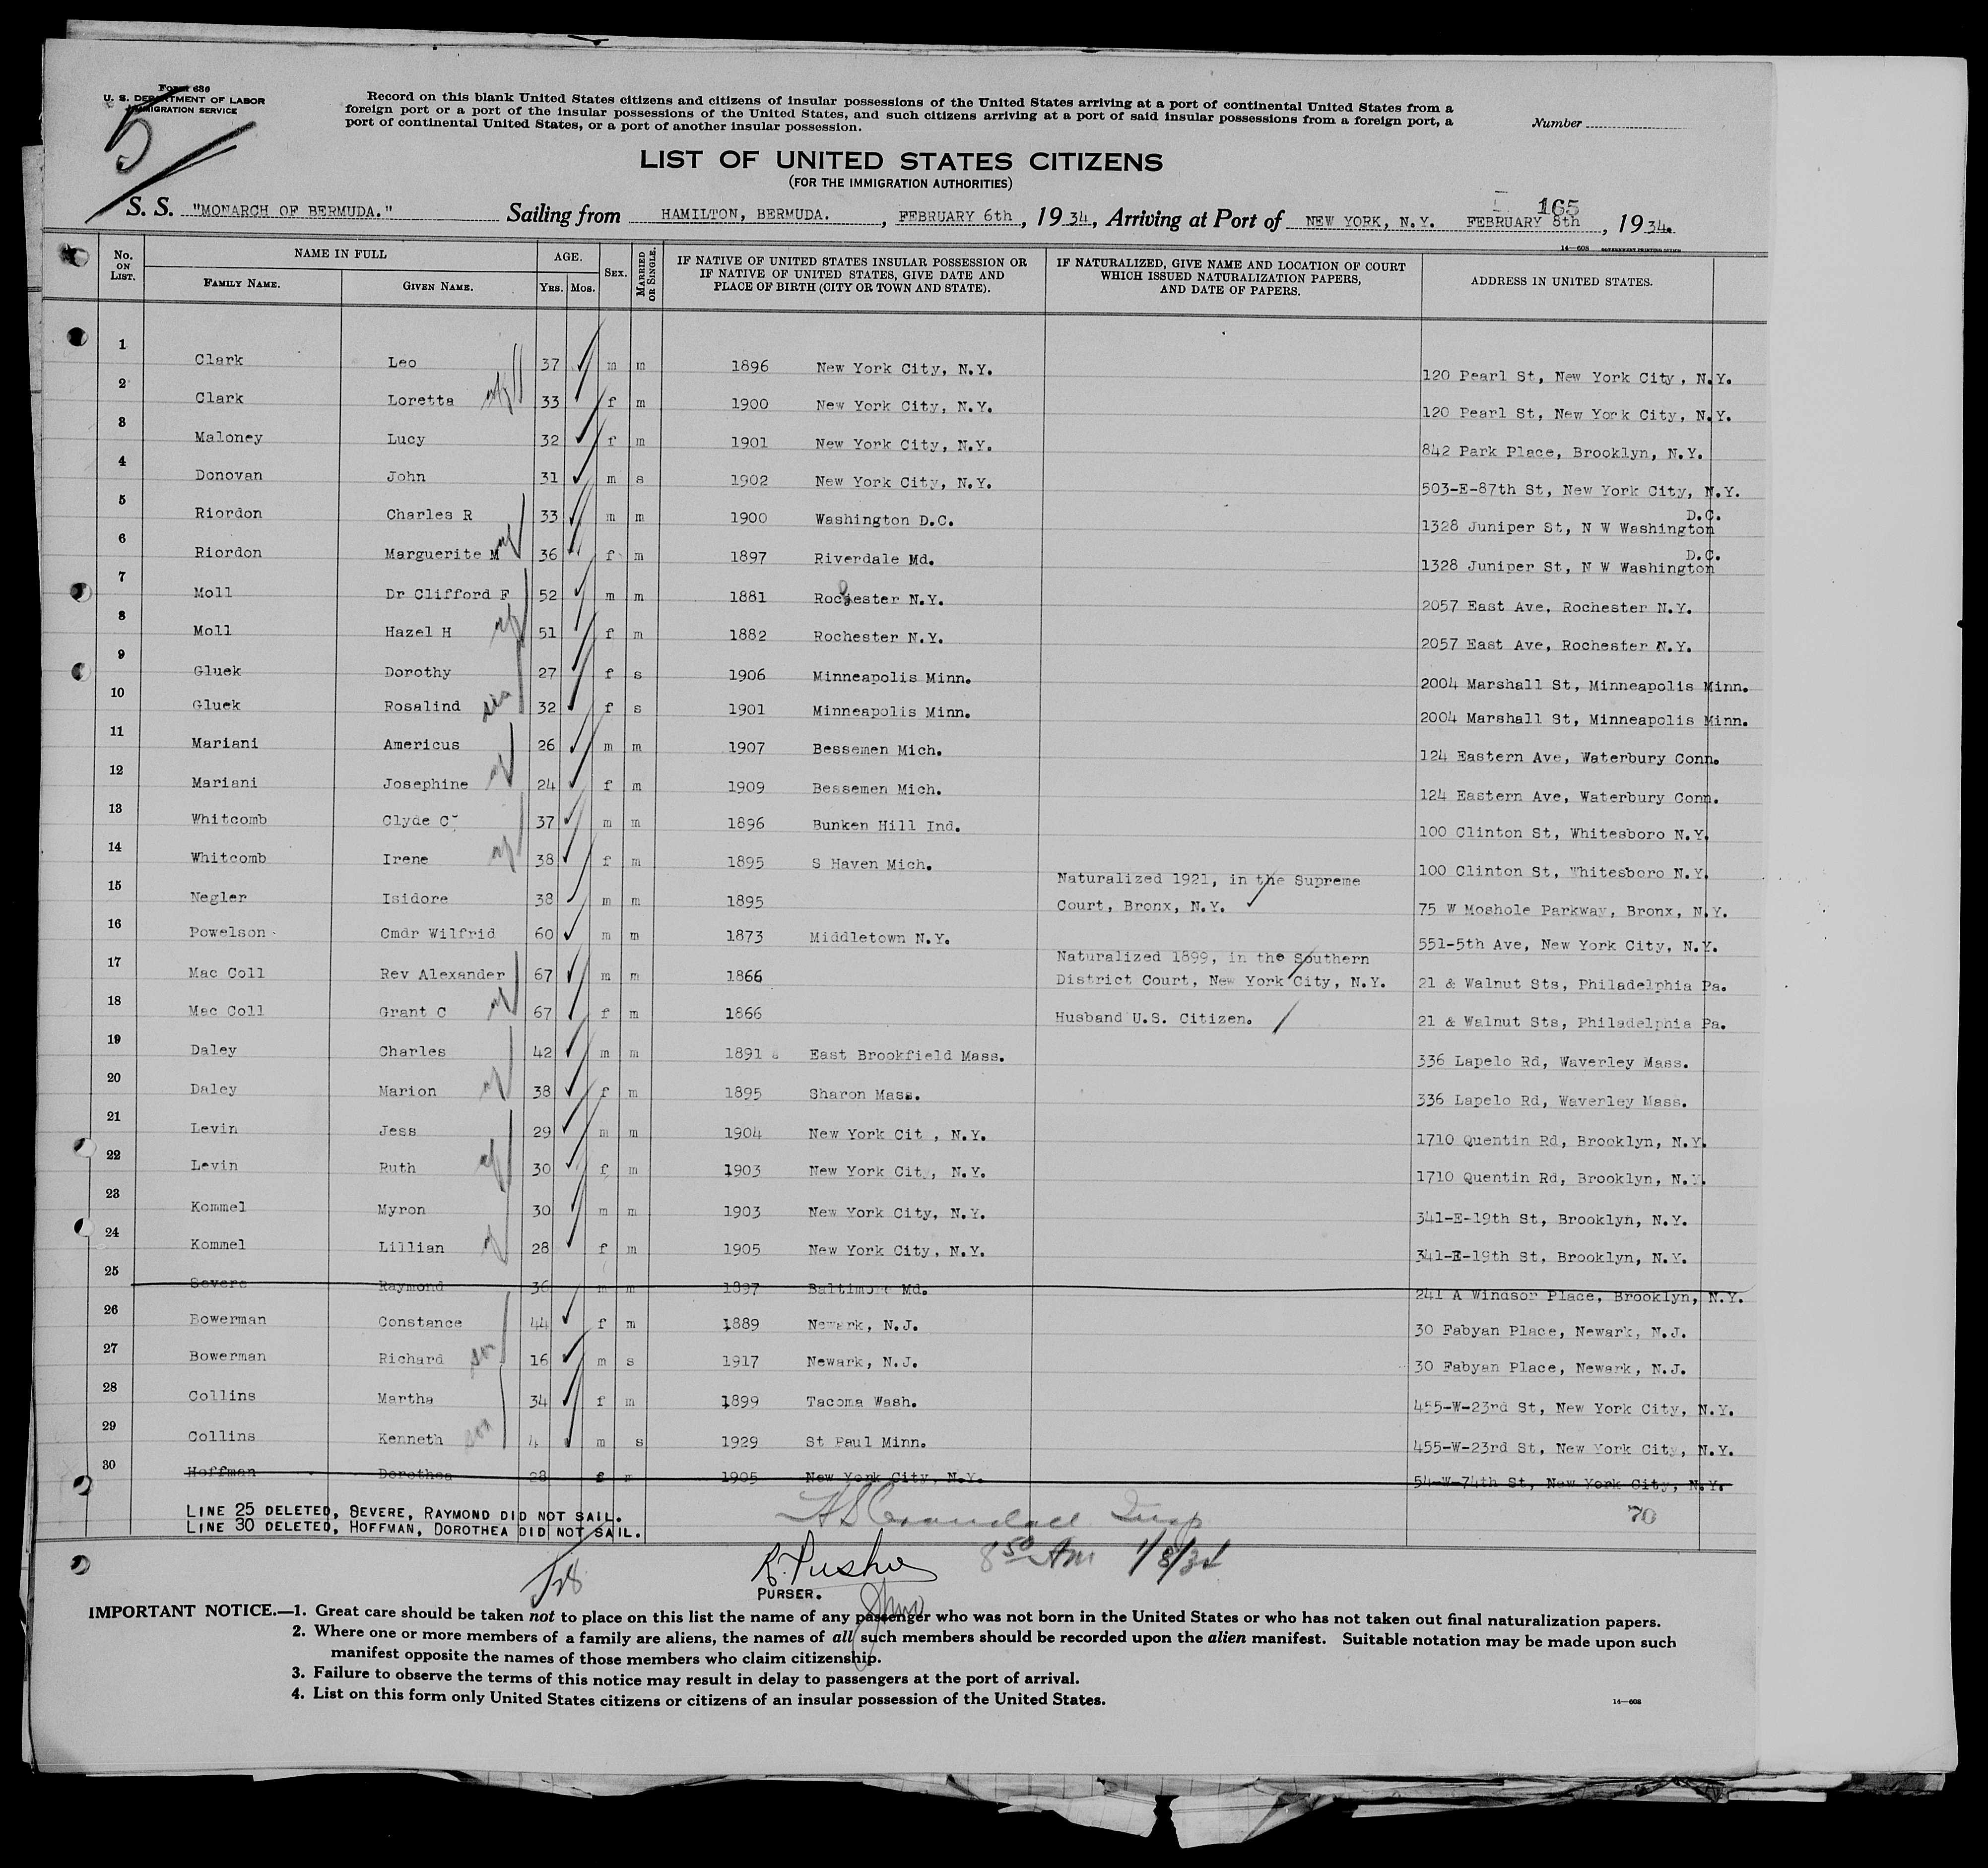 Form 630
U. S. DEPARTMENT OF LABOR
IMMIGRATION SERVICE
5
Record on this blank United States citizens and citizens of insular possessions of the United States arriving at a port of continental United States from a
foreign port or a port of the insular possessions of the United States, and such citizens arriving at a port of said insular possessions from a foreign port, a
port of continental United States, or a port of another insular possession.
Number
LIST OF UNITED STATES CITIZENS
(FOR THE IMMIGRATION AUTHORITIES)
165
S. S. "MONARCH OF BERMUDA." Sailing from HAMILTON, BERMUDA. , FEBRUARY 6th , 19 34, Arriving at Port of NEW YORK, N.Y. FEBRUARY 8th , 19 34.
14—608 GOVERNMENT PRINTING OFFICE
No. ON LIST. NAME IN FULL FAMILY NAME. GIVEN NAME. AGE. YRS. MOS. SEX. MARRIED OR SINGLE. IF NATIVE OF UNITED STATES INSULAR POSSESSION OR IF NATIVE OF UNITED STATES, GIVE DATE AND PLACE OF BIRTH (CITY OR TOWN AND STATE). IF NATURALIZED, GIVE NAME AND LOCATION OF COURT WHICH ISSUED NATURALIZATION PAPERS, AND DATE OF PAPERS. ADDRESS IN UNITED STATES.
1 Clark Leo 37 m m 1896 New York City, N.Y. 120 Pearl St, New York City, N.Y.
2 Clark Loretta 33 f m 1900 New York City, N.Y. 120 Pearl St, New York City, N.Y.
3 Maloney Lucy 32 f m 1901 New York City, N.Y. 842 Park Place, Brooklyn, N.Y.
4 Donovan John 31 m s 1902 New York City, N.Y. 503-E-87th St, New York City, N.Y.
5 Riordon Charles R 33 m m 1900 Washington D.C. 1328 Juniper St, N W Washington D.C.
6 Riordon Marguerite M 36 f m 1897 Riverdale Md. 1328 Juniper St, N W Washington D.C.
7 Moll Dr Clifford F 52 m m 1881 Rochester N.Y. 2057 East Ave, Rochester N.Y.
8 Moll Hazel H 51 f m 1882 Rochester N.Y. 2057 East Ave, Rochester N.Y.
9 Gluek Dorothy 27 f s 1906 Minneapolis Minn. 2004 Marshall St, Minneapolis Minn.
10 Gluek Rosalind sis 32 f s 1901 Minneapolis Minn. 2004 Marshall St, Minneapolis Minn.
11 Mariani Americus 26 m m 1907 Bessemen Mich. 124 Eastern Ave, Waterbury Conn.
12 Mariani Josephine 24 f m 1909 Bessemen Mich. 124 Eastern Ave, Waterbury Conn.
13 Whitcomb Clyde C 37 m m 1896 Bunken Hill Ind. 100 Clinton St, Whitesboro N.Y.
14 Whitcomb Irene 38 f m 1895 S Haven Mich. 100 Clinton St, Whitesboro N.Y.
15 Negler Isidore 38 m m 1895 Naturalized 1921, in the Supreme Court, Bronx, N.Y. 75 W Moshole Parkway, Bronx, N.Y.
16 Powelson Cmdr Wilfrid 60 m m 1873 Middletown N.Y. 551-5th Ave, New York City, N.Y.
17 Mac Coll Rev Alexander 67 m m 1866 Naturalized 1899, in the Southern District Court, New York City, N.Y. 21 & Walnut Sts, Philadelphia Pa.
18 Mac Coll Grant C 67 f m 1866 Husband U.S. Citizen. 21 & Walnut Sts, Philadelphia Pa.
19 Daley Charles 42 m m 1891 East Brookfield Mass. 336 Lapelo Rd, Waverley Mass.
20 Daley Marion 38 f m 1895 Sharon Mass. 336 Lapelo Rd, Waverley Mass.
21 Levin Jess 29 m m 1904 New York Cit , N.Y. 1710 Quentin Rd, Brooklyn, N.Y.
22 Levin Ruth 30 f m 1903 New York City, N.Y. 1710 Quentin Rd, Brooklyn, N.Y.
23 Kommel Myron 30 m m 1903 New York City, N.Y. 341-E-19th St, Brooklyn, N.Y.
24 Kommel Lillian 28 f m 1905 New York City, N.Y. 341-E-19th St, Brooklyn, N.Y.
25 Severe Raymond 36 m m 1897 Baltimore Md. 241 A Windsor Place, Brooklyn, N.Y.
26 Bowerman Constance 44 f m 1889 Newark, N.J. 30 Fabyan Place, Newark, N.J.
27 Bowerman Richard son 16 m s 1917 Newark, N.J. 30 Fabyan Place, Newark, N.J.
28 Collins Martha 34 f m 1899 Tacoma Wash. 455-W-23rd St, New York City, N.Y.
29 Collins Kenneth son 4 m s 1929 St Paul Minn. 455-W-23rd St, New York City, N.Y.
30 Hoffman Dorothea 28 f m 1905 New York City, N.Y. 54-W-74th St, New York City, N.Y.
LINE 25 DELETED, SEVERE, RAYMOND DID NOT SAIL.
LINE 30 DELETED, HOFFMAN, DOROTHEA DID NOT SAIL.
70
8 50 AM 1/8/34
PURSER.
IMPORTANT NOTICE.—1. Great care should be taken not to place on this list the name of any passenger who was not born in the United States or who has not taken out final naturalization papers.
2. Where one or more members of a family are aliens, the names of all such members should be recorded upon the alien manifest. Suitable notation may be made upon such
manifest opposite the names of those members who claim citizenship.
3. Failure to observe the terms of this notice may result in delay to passengers at the port of arrival.
4. List on this form only United States citizens or citizens of an insular possession of the United States.
14—608